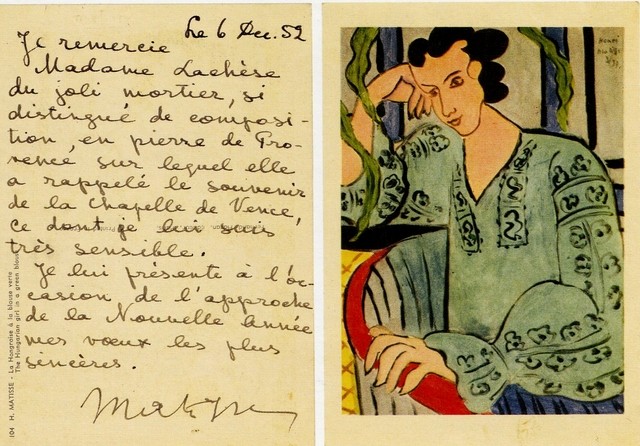 Le 6 Dec. 52
Je remercie
Madame Lachèse
du joli mortier, si
distingué de composi-
tion, en pierre de Pro-
vence sur lequel elle
a rappelé le souvenir
de la Chapelle de Vence,
ce dont je lui suis
très sensible.
Je lui présente à l'oc-
casion de l'approche
de la Nouvelle Année
mes vœux les plus
sincères.
Matisse
104 H. MATISSE - La Hongroise à la blouse verte
The Hungarian girl in a green blouse
Henri
Matisse